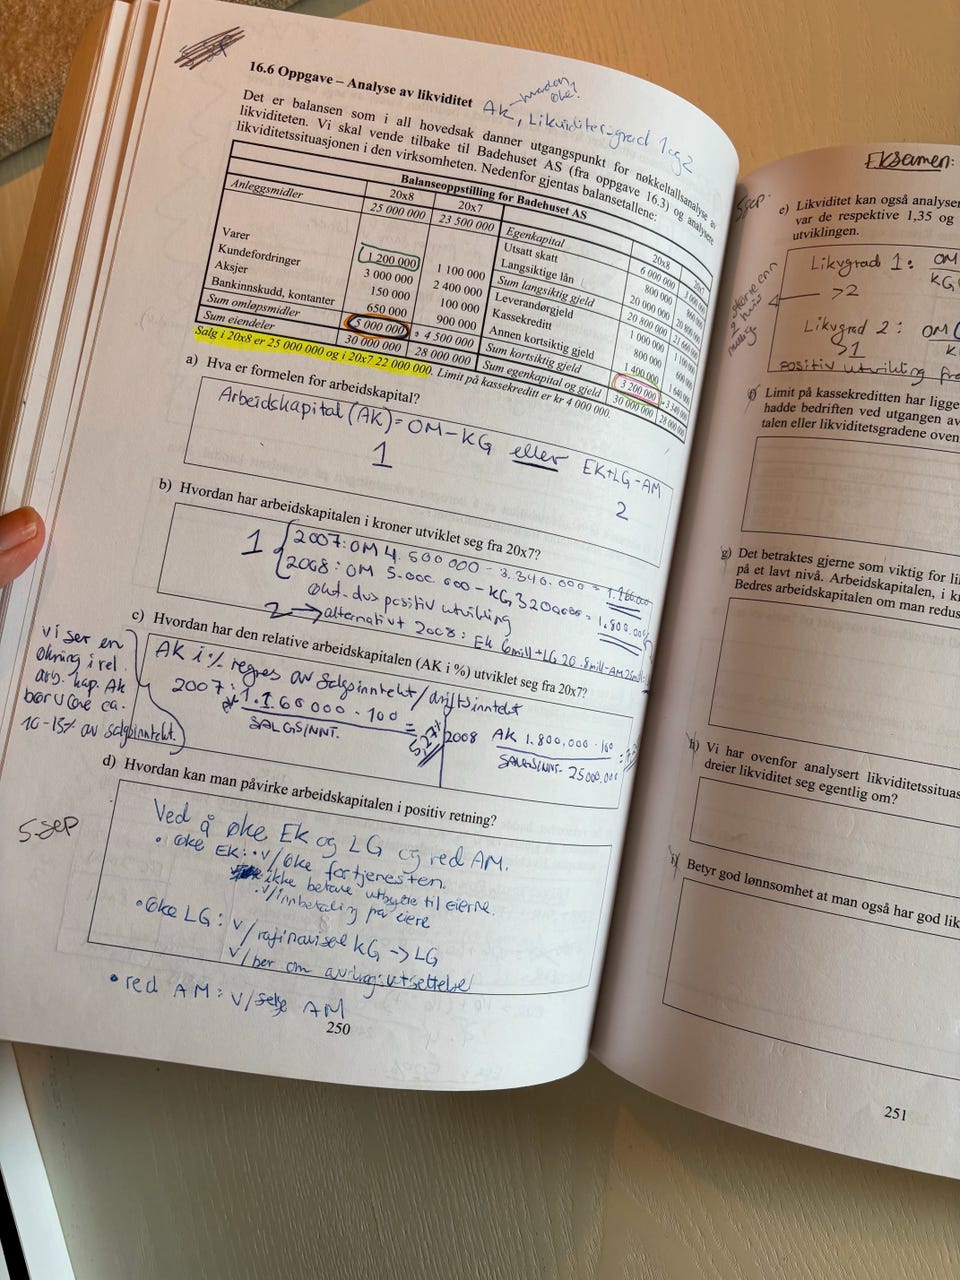 16.6 Oppgave – Analyse av likviditet
AK, Likviditetsgrad 1 og 2
Det er balansen som i all hovedsak danner utgangspunkt for nøkkeltallsanalyse av
likviditeten. Vi skal vende tilbake til Badehuset AS (fra oppgave 16.3) og analysere
likviditetssituasjonen i den virksomheten. Nedenfor gjentas balansetallene:
Balanseoppstilling for Badehuset AS
20x8 20x7 20x8 20x7
Anleggsmidler 25 000 000 23 500 000 Egenkapital 6 000 000
Utsatt skatt 800 000
Langsiktige lån 20 000 000
Varer 1 200 000 1 100 000 Sum langsiktig gjeld 20 800 000
Kundefordringer 3 000 000 2 400 000 Leverandørgjeld 1 000 000
Aksjer 150 000 100 000 Kassekreditt 800 000
Bankinnskudd, kontanter 650 000 900 000 Annen kortsiktig gjeld 1 400 000
Sum omløpsmidler 5 000 000 4 500 000 Sum kortsiktig gjeld 3 200 000 3 340 000
Sum eiendeler 30 000 000 28 000 000 Sum egenkapital og gjeld 30 000 000 28 000 000
Salg i 20x8 er 25 000 000 og i 20x7 22 000 000. Limit på kassekreditt er kr 4 000 000.
a) Hva er formelen for arbeidskapital?
Arbeidskapital (AK) = OM – KG eller EK+LG – AM
1 2
b) Hvordan har arbeidskapitalen i kroner utviklet seg fra 20x7?
1 2007: OM 4.500 000 – 3.340.000 = 1.160.000
2008: OM 5.000.000 – KG 3200000 = 1.800.000
økt - dvs positiv utvikling
2 → alternativt 2008: EK 6mill + LG 20.8mill – AM 25mill
c) Hvordan har den relative arbeidskapitalen (AK i %) utviklet seg fra 20x7?
AK i % regnes av salgsinntekt/driftsinntekt
2007: 1.160000 · 100 = 5,27%
SALGSINNT.
2008 AK 1.800.000 · 100 =
SALGSINNT. 25000.000
vi ser en
økning i rel.
arb. kap. AK
bør være ca.
10-15% av salgsinntekt.
d) Hvordan kan man påvirke arbeidskapitalen i positiv retning?
5.sep
Ved å øke EK og LG og red AM.
• øke EK: • v/øke fortjenesten.
ikke betale utbytte til eierne.
• v/innbetaling fra eiere
• øke LG: v/refinansiere KG → LG
v/ber om avdragsutsettelse
• red AM: v/selge AM
250
Eksamen:
5.sep.
e) Likviditet kan også analyser
var de respektive 1,35 og
utviklingen.
Likvgrad 1: OM
KG
>2
Likvgrad 2: OM
>1
positiv utvikling fra
f) Limit på kassekreditten har ligge
hadde bedriften ved utgangen av
talen eller likviditetsgradene oven
g) Det betraktes gjerne som viktig for li
på et lavt nivå. Arbeidskapitalen, i k
Bedres arbeidskapitalen om man redus
h) Vi har ovenfor analysert likviditetssituas
dreier likviditet seg egentlig om?
i) Betyr god lønnsomhet at man også har god lik
251